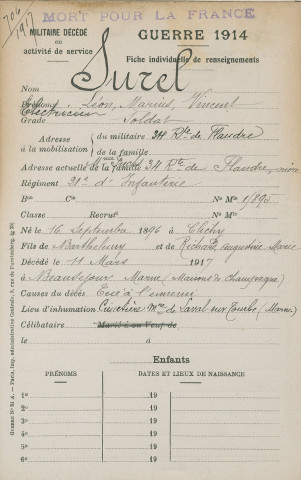 706
1917
MORT POUR LA FRANCE
MILITAIRE DÉCÉDÉ
en
activité de service
GUERRE 1914
Fiche individuelle de renseignements
Surel
Nom
Prénoms Léon, Marius, Vincent
Electricien
Grade Soldat
Adresse à la mobilisation
du militaire 34 Rte de Flandre
de la famille
Adresse actuelle de la famille Mme Surel 34 Rte de Flandre
Régiment 21e d'Infanterie
Bon Cie No Mle 1/895
Classe Recrutt No Mle
Né le 16 Septembre 1896 à Clichy
Fils de Barthélemy et de Augustine Marie
Décédé le 11 Mars 1917
à Beauséjour Marne (Maisons de Champagne)
Causes du décès Tué à l'ennemi
Lieu d'inhumation Cimetière Mre de Laval sur Tourbe (Marne)
Célibataire Marié à ou Veuf de
le à
Enfants
PRÉNOMS DATES ET LIEUX DE NAISSANCE
1o 19
2o 19
3o 19
4o 19
5o 19
6o 19